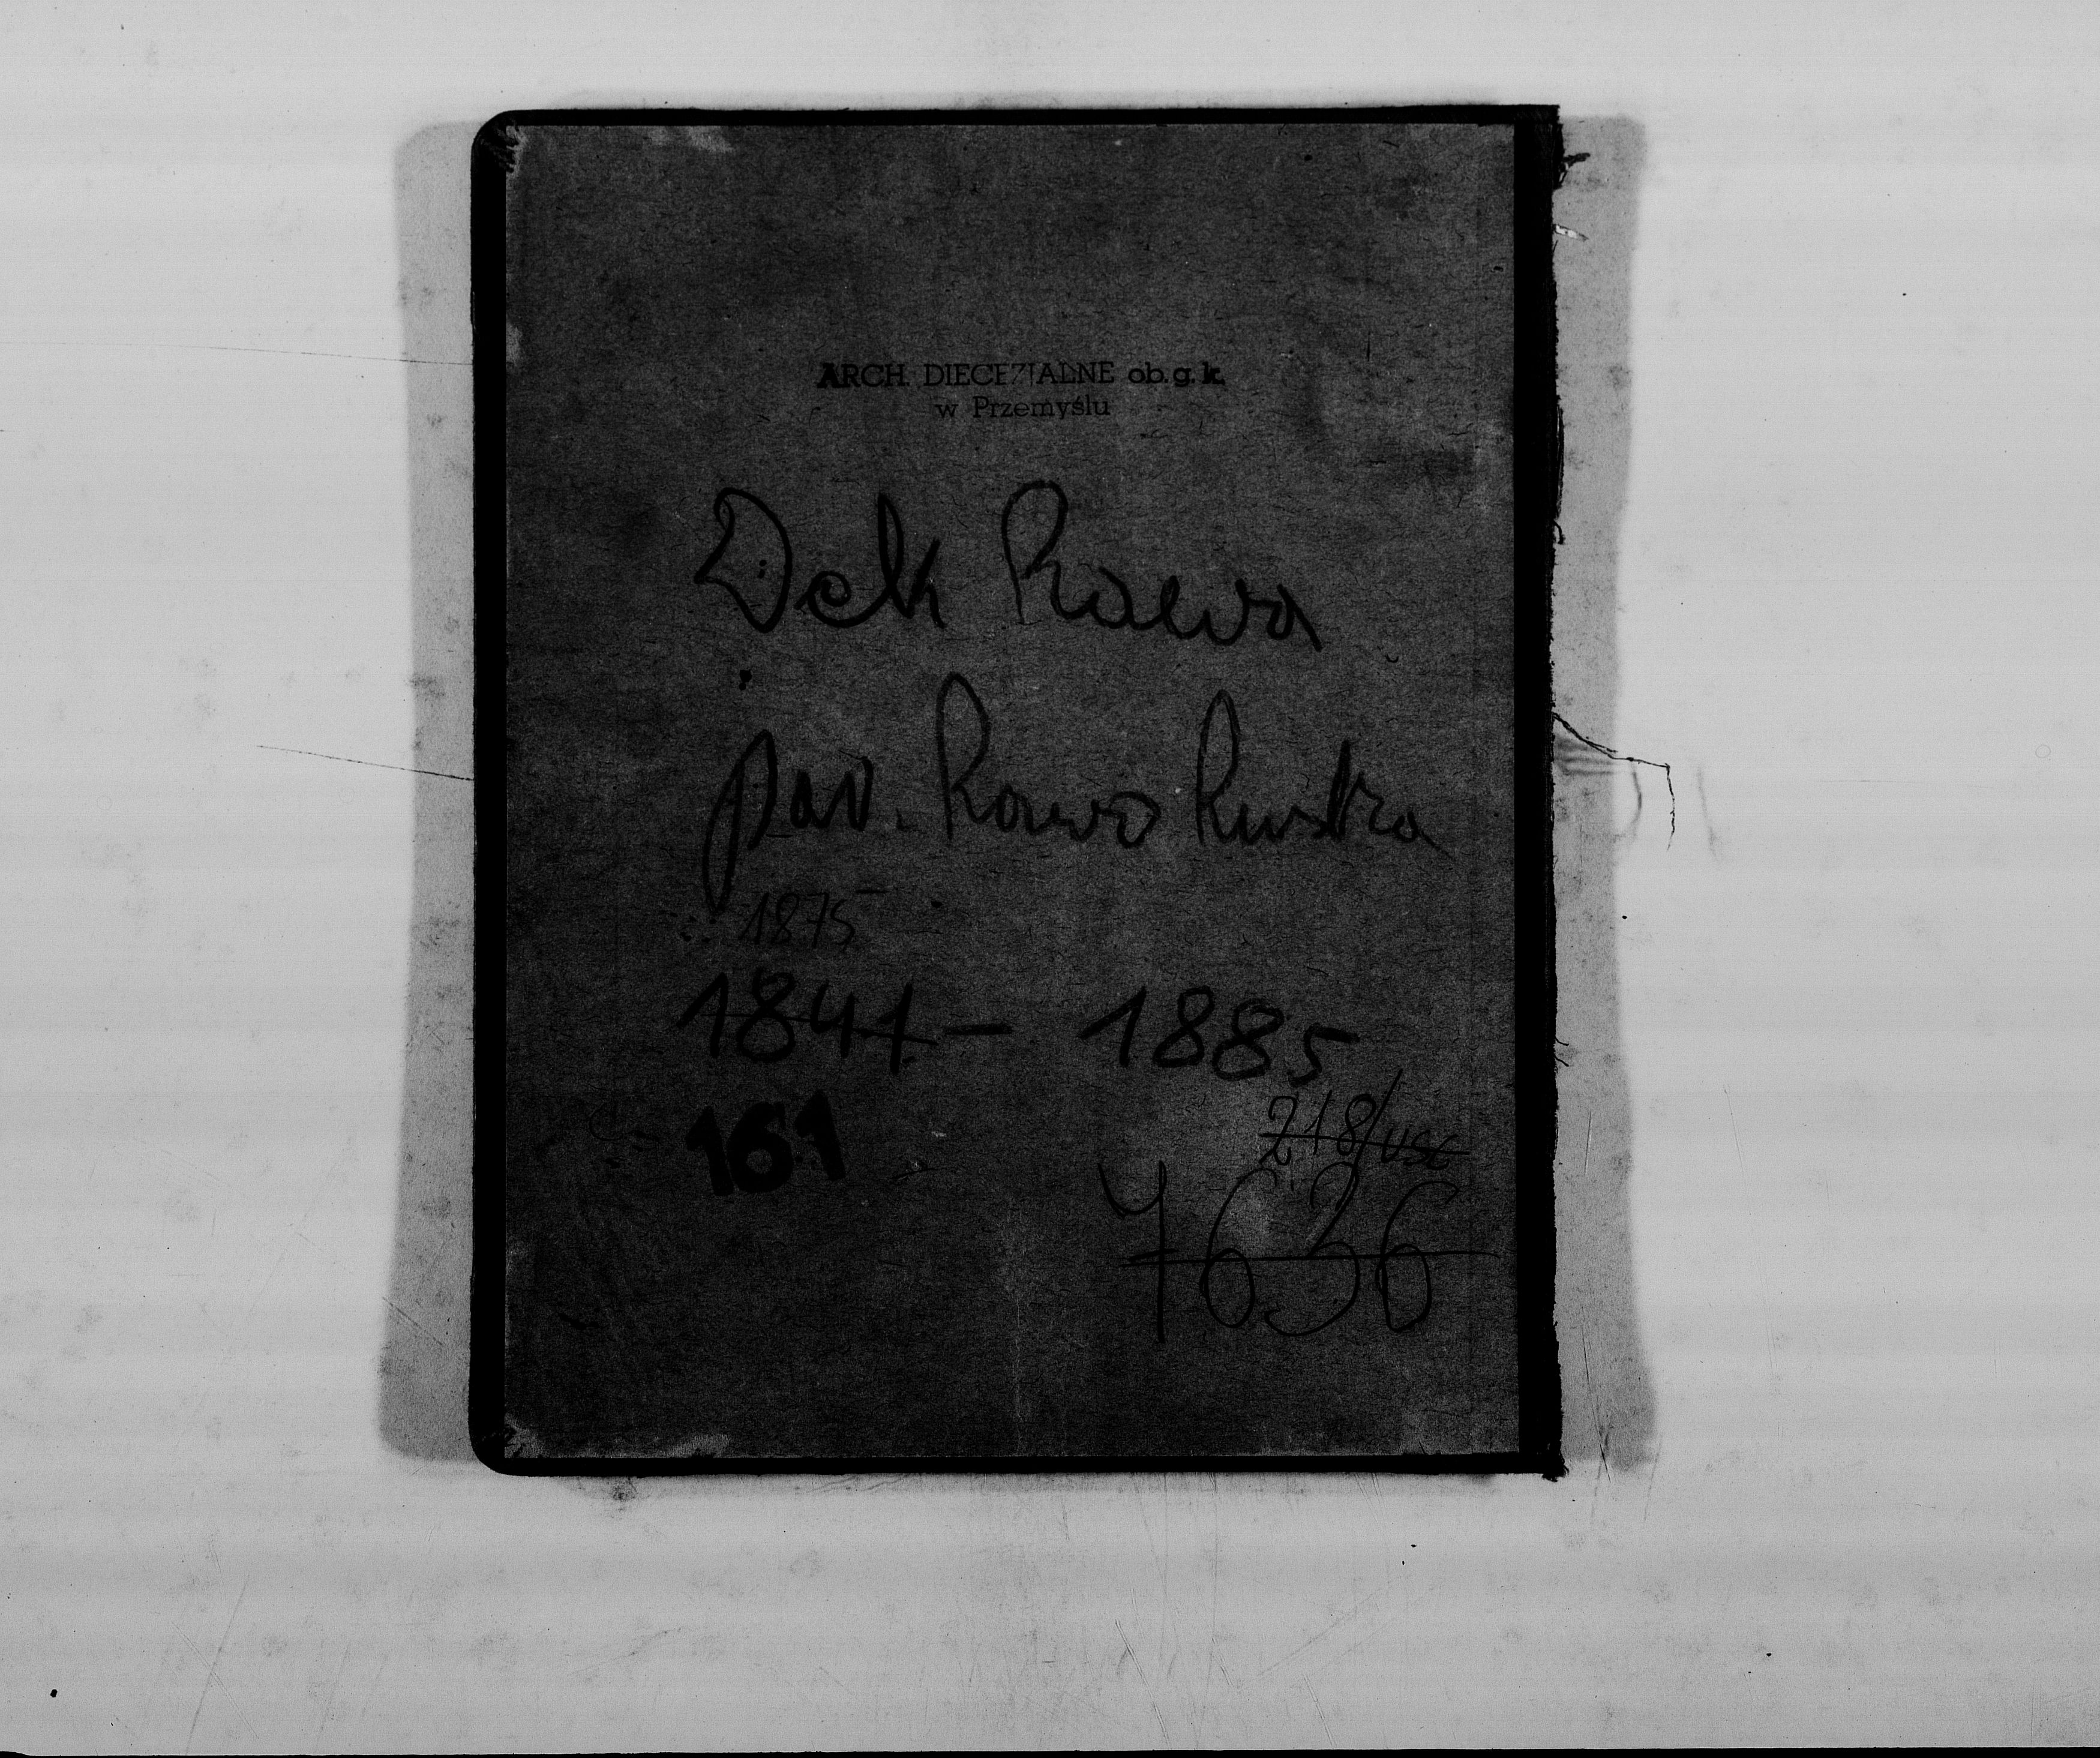 ARCH. DIECEZJALNE ob. g. k.
w Przemyślu
Dek Rawa
par. Rawa Ruska
1875
1841 – 1885
161
218/USC
7636